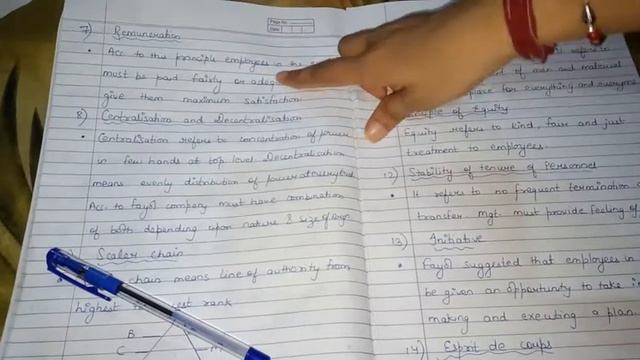 Page No.
Date
7) Remuneration
• Acc. to this principle employees in the
must be paid fairly or
give them maximum satisfaction
8) Centralisation and Decentralisation
• Centralisation refers to concentration of power
in few hands at top level. Decentralication
means evenly distribution of power at everylevel
Acc. to fayol company must have combination
of both depending upon nature & size of orgn.
Scaler chain
chain means line of authority from
highest rank
B
C
refers to
of men and material
place for everything and everyone
of Equity
Equity refers to kind, fair and just
treatment to employees.
12) Stability of tenure of Personnel
• It refers to no frequent termination
transfer. mgt. must provide feeling of
13) Initiative
• Fayol suggested that employees in
be given an opportunity to take in
making and executing a plan.
14) Esprit de coups